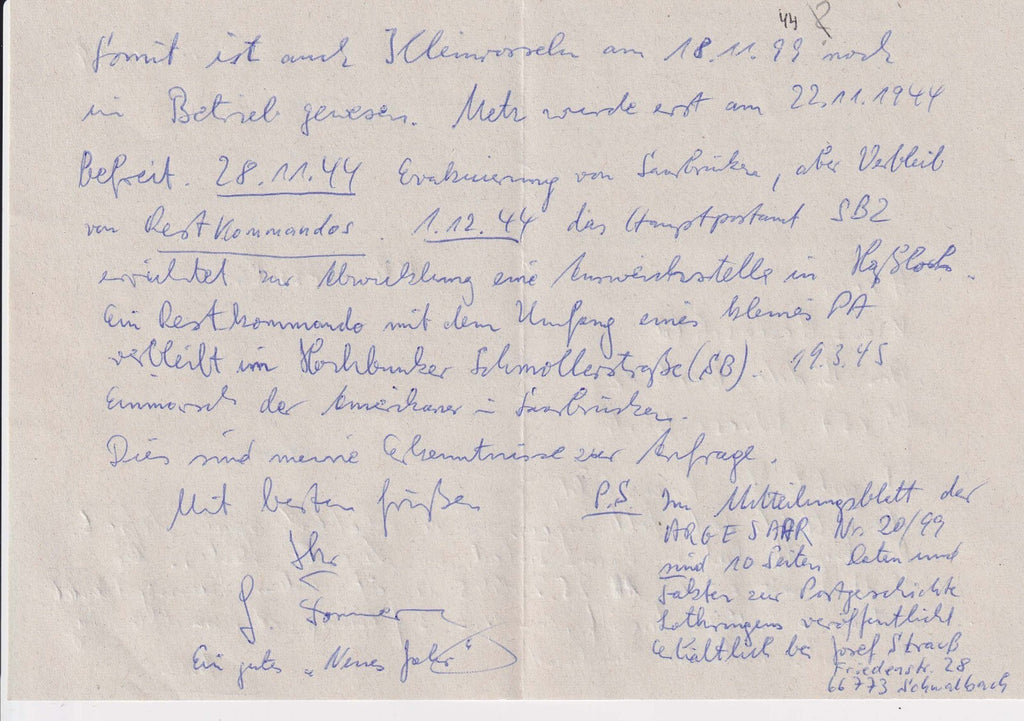 44 ?
Somit ist auch Kleinrosseln am 18.11.99 noch
in Betrieb gewesen. Metz wurde erst am 22.11.1944
befreit. 28.11.44 Evakuierung von Saarbrücken, aber Verbleib
von Restkommandos. 1.12.44 das Hauptpostamt SB2
errichtet zur Abwicklung eine Ausweichstelle in Haßloch.
Ein Restkommando mit dem Umfang eines kleines PA
verbleibt im Hochbunker Schmollerstraße (SB). 19.3.45
Einmarsch der Amerikaner in Saarbrücken.
Dies sind meine Erkenntnisse zur Anfrage.
Mit besten Grüßen
Ihr
Ein gutes „Neues Jahr"
P.S Im Mitteilungsblatt der
ARGE SAAR Nr. 20/99
sind 10 Seiten Daten und
Fakten zur Postgeschichte
Lothringens veröffentlicht
Erhältlich bei Josef Strauß
Friedenstr. 28
66773 Schwalbach